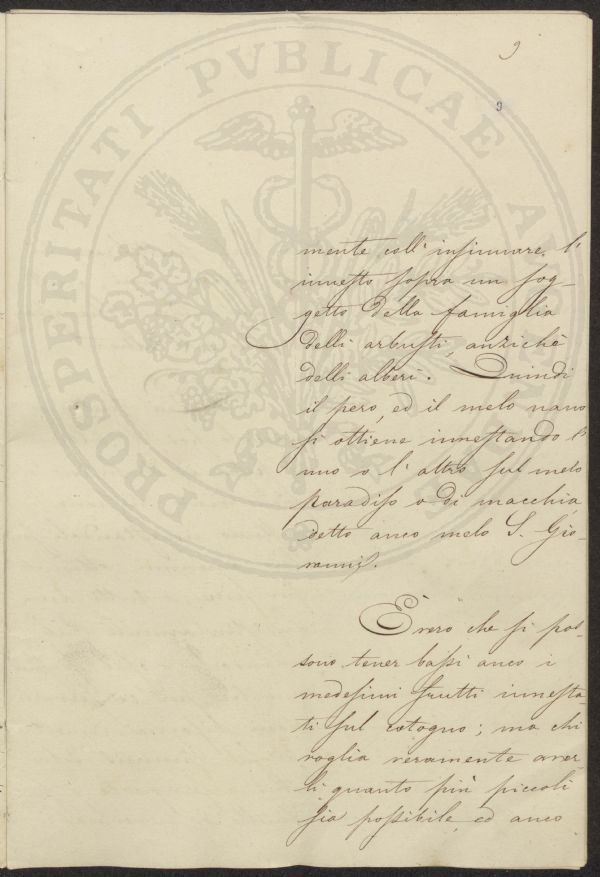 9
9
PROSPERITATI PVBLICAE AVGENDAE
mente coll' insinuare l'
innesto sopra un sog-
getto della famiglia
delli arbusti, anzichè
delli alberi. Quindi
il pero, ed il melo nano
si ottiene innestando l'
uno o l' altro sul melo
paradiso o di macchia,
detto anco melo S. Gio-
vanni.
È vero che si pos-
sono tener bassi anco i
medesimi frutti innesta-
ti sul cotogno; ma chi
voglia veramente aver-
li quanto più piccoli
sia possibile, ed anco